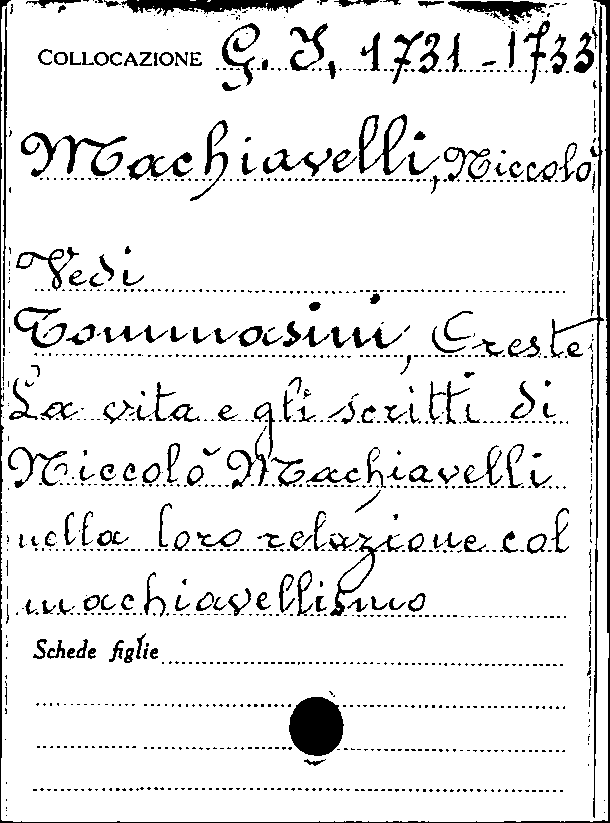 COLLOCAZIONE G. I, 1731-1733
Machiavelli, Niccolò
Vedi
Tommasini, Oreste
La vita e gli scritti di
Niccolò Machiavelli
nella loro relazione col
machiavellismo
Schede figlie